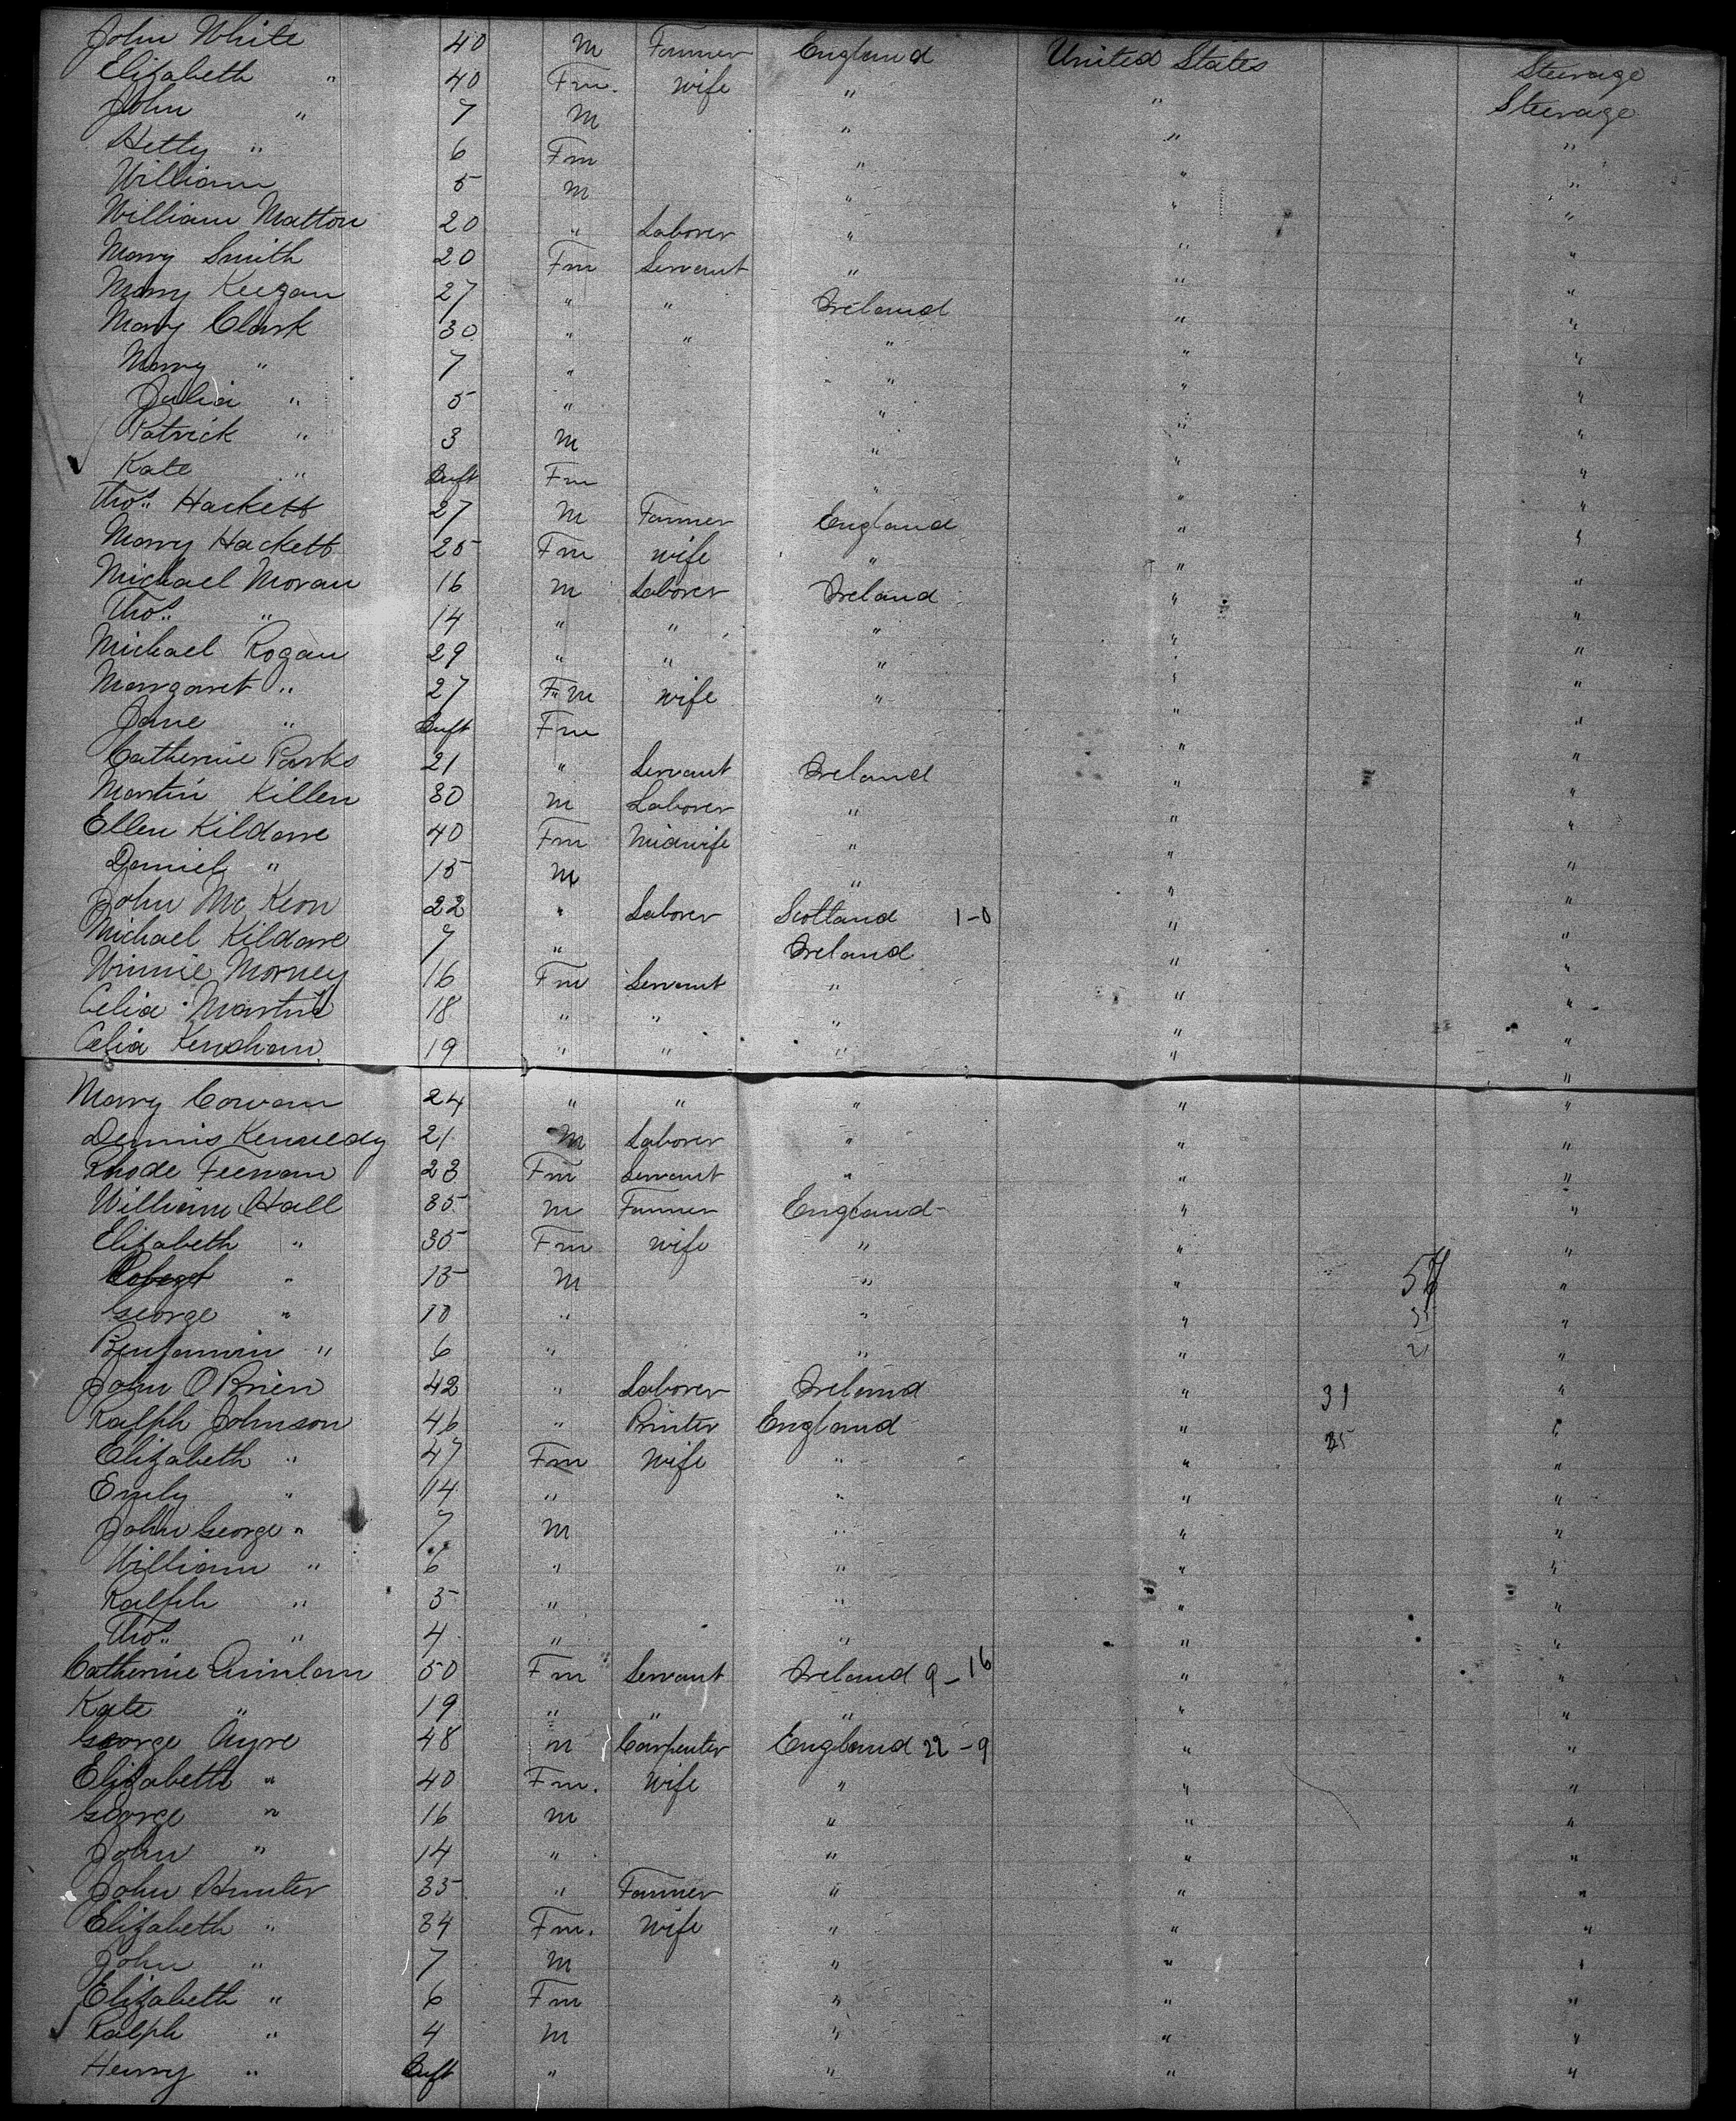 John White 40 M Farmer England United States Steerage
Elizabeth " 40 Fm. Wife " " Steerage
John " 7 M " " "
Hetty " 6 Fm " " "
William 5 M " " "
William Matton 20 " Laborer " " "
Mary Smith 20 Fm Servant " " "
Mary Keegan 27 " " Ireland " "
Mary Clark 30 " " " " "
Mary " 7 " " " "
Julia " 5 " " " "
Patrick " 3 M " " "
Kate " Inft Fm " " "
Thos. Hackett 27 M Farmer England " "
Mary Hackett 25 Fm Wife " " "
Michael Moran 16 M Laborer Ireland " "
Thos. " 14 " " " " "
Michael Rogan 29 " " " " "
Margaret " 27 Fm Wife " " "
Jane " Inft Fm " "
Catherine Parks 21 " Servant Ireland " "
Martin Killen 30 M Laborer " " "
Ellen Kildare 40 Fm Midwife " " "
Daniel " 15 M " " "
John McKeon 22 " Laborer Scotland 1-0 " "
Michael Kildare 7 " Ireland " "
Winnie Morney 16 Fm Servant " " "
Celia Martin 18 " " " " "
Celia 19 " " " " "
Mary Cowan 24 " " " " "
Dennis Kennedy 21 M Laborer " " "
Rhode Feenan 23 Fm Servant " " "
William Hall 35 M Farmer England " "
Elizabeth " 35 Fm Wife " " "
Robert " 15 M " " "
George " 10 " " " "
Benjamin " 6 " " " "
John O'Brien 42 " Laborer Ireland " 31 "
Ralph Johnson 46 " Printer England " 25 "
Elizabeth " 47 Fm Wife " " "
Emily " 14 " " " "
John George " 7 M " " "
William " 6 " " " "
Ralph " 5 " " " "
Thos. " 4 " " " "
Catherine Quinlan 50 Fm Servant Ireland 9-16 " "
Kate " 19 " " " " "
George Ayre 48 M Carpenter England 22-9 " "
Elizabeth " 40 Fm. Wife " " "
George " 16 M " " "
John " 14 " " " "
John Hunter 35 " Farmer " " "
Elizabeth " 34 Fm. Wife " " "
John " 7 M " " "
Elizabeth " 6 Fm " " "
Ralph " 4 M " " "
Henry " Inft " " " "